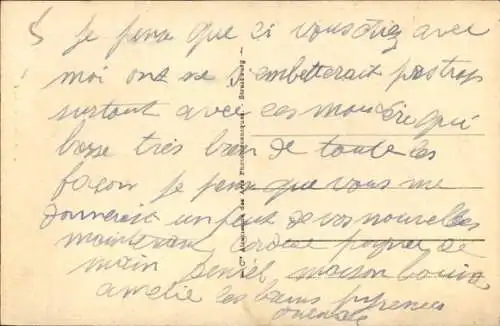 je pense que si vous étiez avec
moi ont ne s'embetterait pas trop
surtout avec ces
basse très bien de toute les
façon je pense que vous me
donnerait un peut de vos nouvelles
maintenant cordial poignee de
main maison
amelie les bains pyrenees
Cie Alsacienne des Arts Photomécaniques - Strasbourg